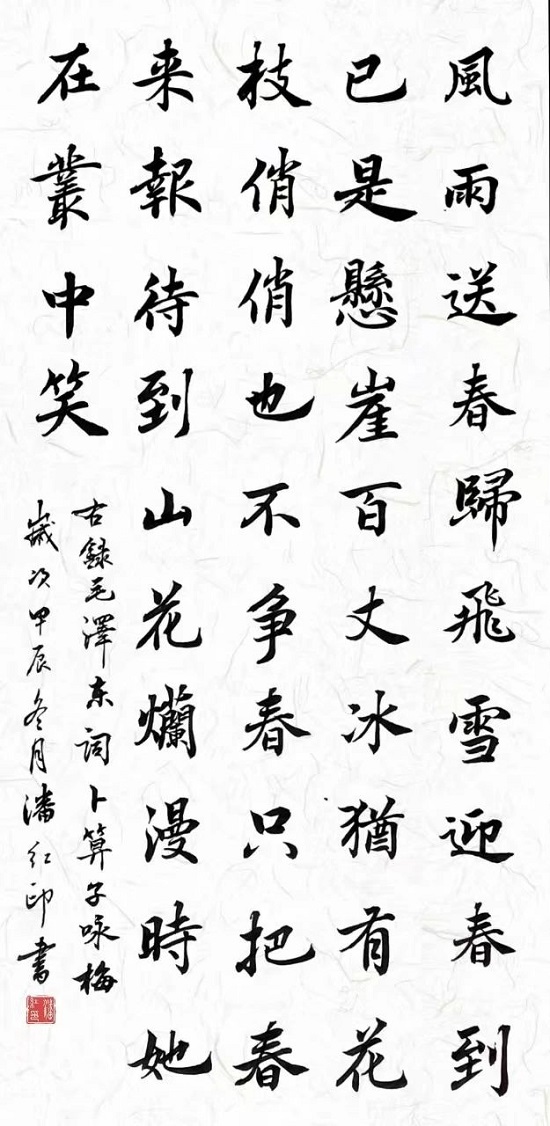 風雨送春歸飛雪迎春到
已是懸崖百丈冰猶有花
枝俏俏也不争春只把春
来報待到山花爛漫時她
在叢中笑
右録毛澤东词卜算子咏梅
歲次甲辰冬月潘红印書